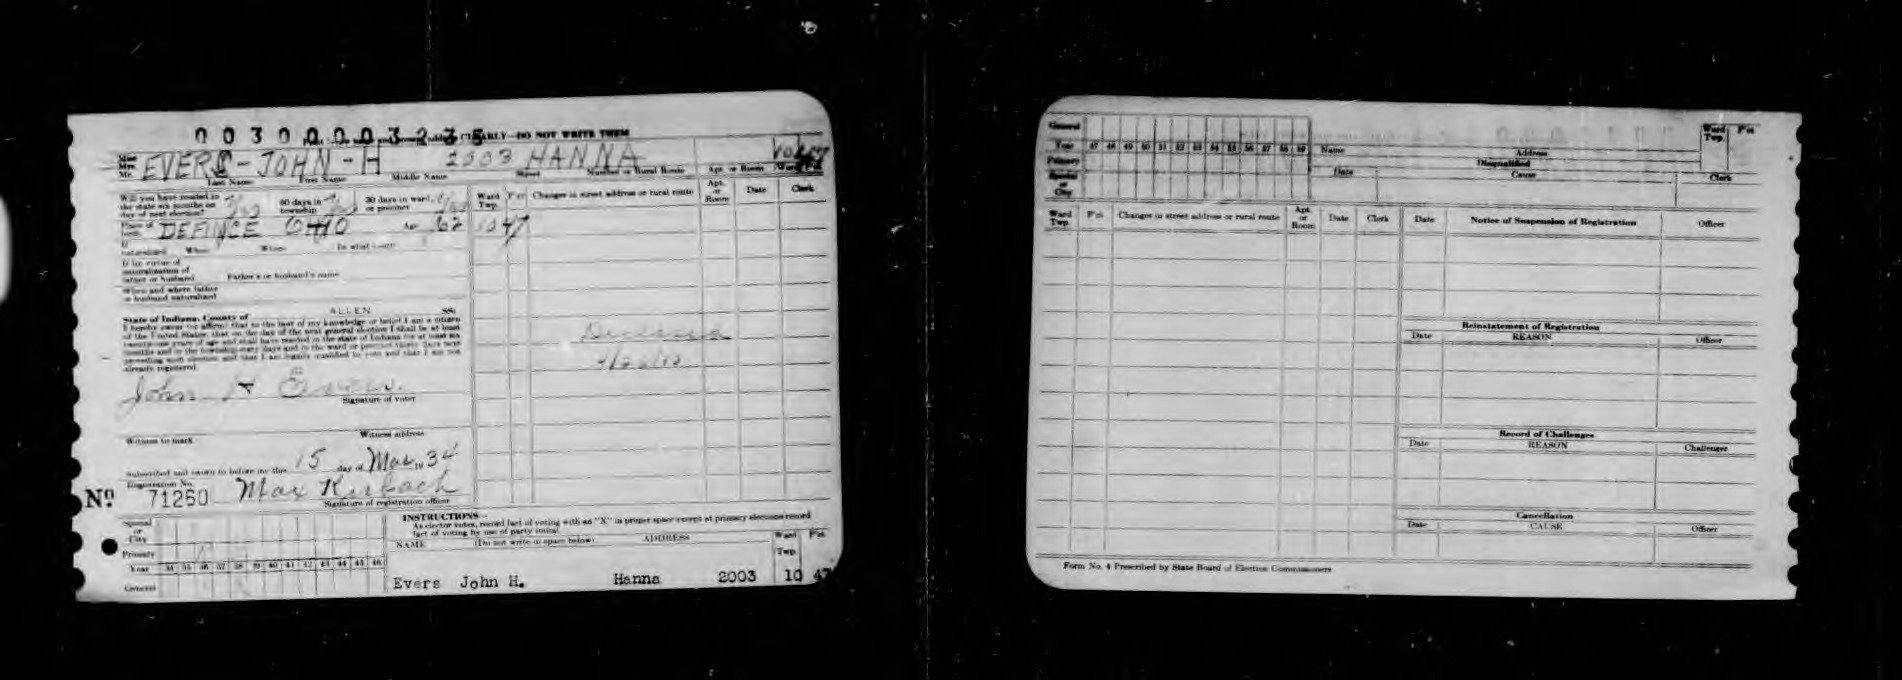 00300003235
CLEARLY—DO NOT WRITE THEM
Miss
Mrs.
Mr.
EVERS-JOHN-H 2003 HANNA
Last Name First Name Middle Name Street Number or Rural Route Apt. or Room Ward Pct.
Will you have resided in the state six months on day of next election? 60 days in township 30 days in ward or precinct
Ward Twp. Pct Changes in street address or rural route Apt. or Room Date Clerk
DEFINCE OHIO Age 62 10 47
If naturalized When Where In what court
If by virtue of naturalization of father or husband Father's or husband's name
When and where father or husband naturalized
State of Indiana, County of ALLEN SS:
I hereby swear (or affirm) that to the best of my knowledge or belief I am a citizen
of the United States; that on the day of the next general election I shall be at least
twenty-one years of age and shall have resided in the state of Indiana for at least six
months and in the township sixty days and in the ward or precinct thirty days next
preceding such election and that I am legally qualified to vote and that I am not
already registered.
Deceased
John H Evers.
Signature of voter
Witness to mark Witness address
Subscribed and sworn to before me this 15 day of Mar 1934
Registration No.
No. 71260 Max
Signature of registration officer
INSTRUCTIONS—
As elector votes, record fact of voting with an "X" in proper space except at primary elections record
fact of voting by use of party initial.
Special or City
Primary
Year 34 35 36 37 38 39 40 41 42 43 44 45 46
General
NAME (Do not write in space below) ADDRESS Ward Twp. Pct.
Evers John H. Hanna 2003 10 47
General
Year 47 48 49 50 51 52 53 54 55 56 57 58 59
Primary
Special or City
Name Address Ward Twp. Pct
Disqualified
Date Cause Clerk
Ward Twp. Pct. Changes in street address or rural route Apt. or Room Date Clerk
Date Notice of Suspension of Registration Officer
Reinstatement of Registration
Date REASON Officer
Record of Challenges
Date REASON Challenger
Cancellation
Date CAUSE Officer
Form No. 4 Prescribed by State Board of Election Commissioners